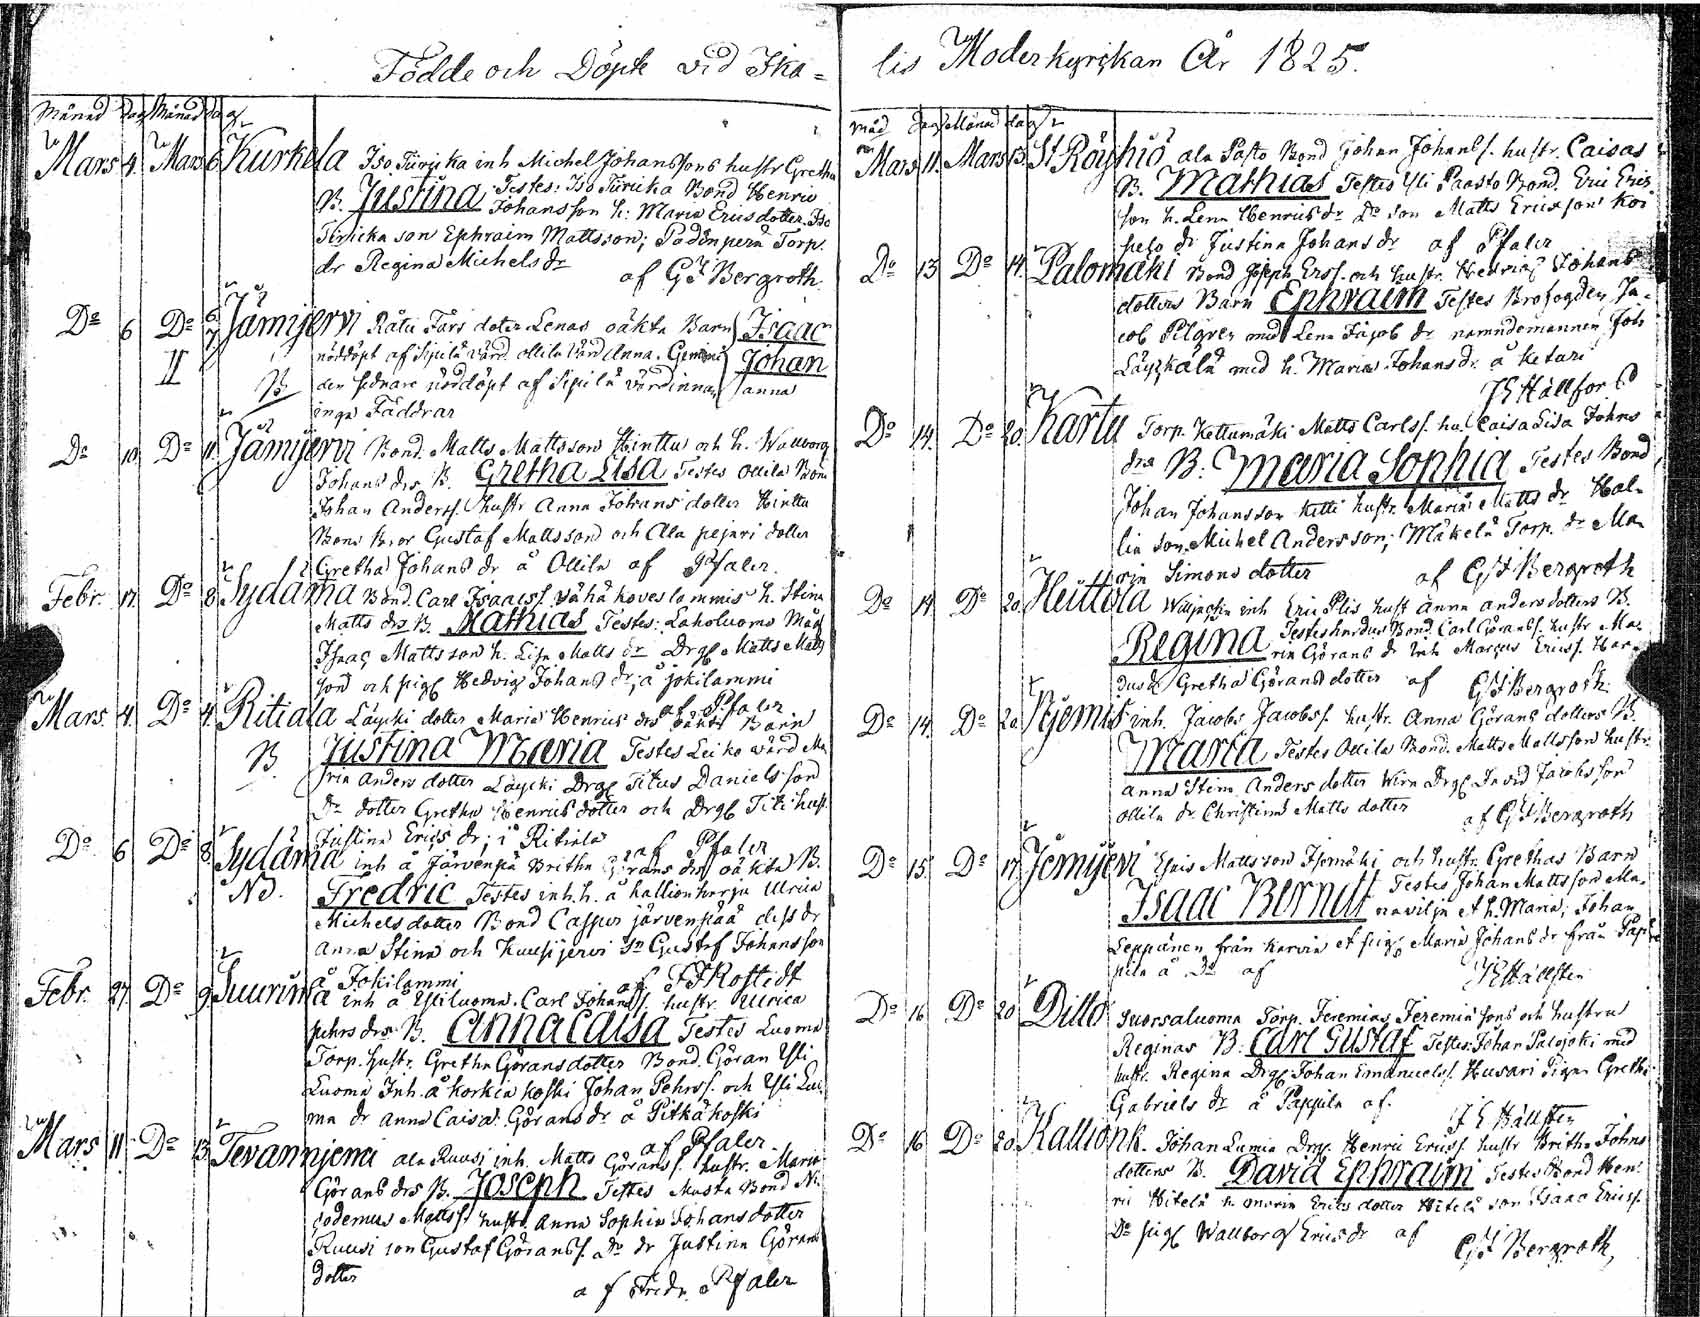 Födde och Döpte vid Ika=
Månad dag Månad dag
Mars 4. Mars 6 Kurkela Iso Türicka inh Michel Johanssons hustr Gretha
B. Justina Testes: Iso Türicka Bond Henric
Johansson h: Maria Ericsdotter. Iso
Türicka son Ephraim Mattsson; Torp.
dr Regina Michels dr af G F Bergroth.
Do 6 Do 7 Jämijervi Rätu Lars doter Lenas oäkta Barn Isaac
nöddöpt af Sipilä värd. Anna. Johan
II B den sednare nöddöpt af Sipilä värdinnan anna
inga Faddrar
Do 10 Do 11. Jämijervi Bond. Matts Mattsson Hinttu och h. Wallborg
Johans drs B. Gretha Lisa Testes Ollila Bond
Johan Anderss. hustr Anna Johans dotter Hinttu
Bond Bror Gustaf Mattsson och Ala pejari dotter
Gretha Johans dr å Ollila af Pfaler.
Febr. 17. Do 8 Sydänma Bond. Carl Isaacss. Vähä koveslommis h. Stina
Matts drs B. Mathias Testes: Laholuoma Måg
Isaac Mattsson h. Lisa Matts dr Drg Matts Matts
son och pig Hedvig Johans dr, å jokilammi
af Pfaler
Mars. 4. Do 4. Ritiala Läycki dotter Maria Henrics drs oäkta Barn
B Justina Maria Testes Leiko värd Ma
ria Anders dotter Läycki Drg Titus Danielsson
Do dotter Gretha Henrics dotter och Drg Titi hust.
Justina Erics dr; i Ritiala af Pfaler
Do 6 Do 8 Sydänma inh å Järvenpä Britha Görans drs oäkta B.
Nd. Fredric Testes inh. h. å kallionkarja Ulrica
Michels dotter Bond Casper järvenpää dess dr
Anna Stina och Kuusijervi Sn Gustaf Johansson
å Jokilammi af F F Rostedt
Febr. 27. Do 9 Suurima inh å Yliluoma. Carl Johanss. hustr. Ulrica
pehrs drs B. Anna Caisa Testes Luoma
Torp. hustr. Gretha Görans dotter Bond Göran Yli
Luoma Inh. å korkia koski Johan Pehrss. och Yli Luo
ma dr Anna Caisa Görans dr å Pitkäkoski
af Pfaler.
Mars 11 Do 13. Tevanniemi ala Ruusi inh. Matts Görans. hustr. Maria
Görans drs B. Joseph Testes Musta Bond Ni
codemus Mattss. hustr Anna Sophia Johans dotter
Ruusi son Gustaf Görans. Do dr Justina Görans
dotter af Fredr. Pfaler
lis Moderkyrkan År 1825.
Dag Månad dag
Mars 11. Mars 13. St Röyhiö ala Pasto Bond Johan Johanss. hustr. Caisas
B. Mathias Testes Yli Paasto Bond. Eric Eric
son h. Lena Henrics dr Do son Matts Ericssons Koi
dr Justina Johans dr af Pfaler
Do 13 Do 14. Palomäki Bond Joseph Erss. och hustr. Hedvig Johans
dotters Barn Ephraim Testes Brofogden Ja=
cob Pilgren med Lena Jacob dr namndemannen Joh
med h. Maria Johans dr å ketari
J E Hällfors
Do 14. Do 20. Kartu Torp. Kettumäki Matts Carlss. hu. Caisa Lisa Johns
drs B. Maria Sophia Testes Bond
Johan Johansson ketti hustr. Maria Matts dr Hal=
lia son. Michel Andersson; Mäkelä Torp. dr Ma
ria Simons dotter af G F Bergroth
Do 14 Do 20. Heittola inh Eric Plis hust änna anders dotters B.
Regina Testes hardus Bond. Carl Göranss. hustr Ma=
ria Görans dr Inh Marcus Ericss. Har=
dus dr Gretha Görans dotter af G F Bergroth.
Do 14 Do 20 inh. Jacobs Jacobss. hustr. Anna Görans dotters B.
Maria Testes Ollila Bond. Matts Mattsson hustr.
Anna Stina Anders dotter Drg David Jacobsson
Ollila dr. Christina Matts dotter af G F Bergroth
Do 15. Do 17 Jemijervi Esais Mattsson Isomäki och hustr. Grethas Barn
Isaac Berndt Testes Johan Mattsson Ma=
et h. Maria; Johan
Leppänen från karvia et pig. Maria Johans dr från Pap
pila å Do af J E Hällsten
Do 16 Do 20 Ditto Suorsaluoma Torp. Jeremias Jeremiasons och hustru
Reginas B: Carl Gustaf Testes Johan Salojoki med
hustr. Regina Drg Johan Emanuelss. Husari Pigan Gretha
Gabriels dr å Pappila af J E Hällsten
Do 16 Do 20. Kallionk. Johan Lumia Drg. Henric Ericss. hustr Britha Johns
dotters B. David Ephraim Testes Bond Hen
ric Hitelä h Maria Erics dotter Hitelä son Isaac Ericss.
Do pig Wallborg Erics dr af G F Bergroth,